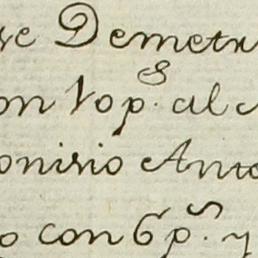 se Demetr
on 10 p.s al
onisio Anto
o con 6 p.s y